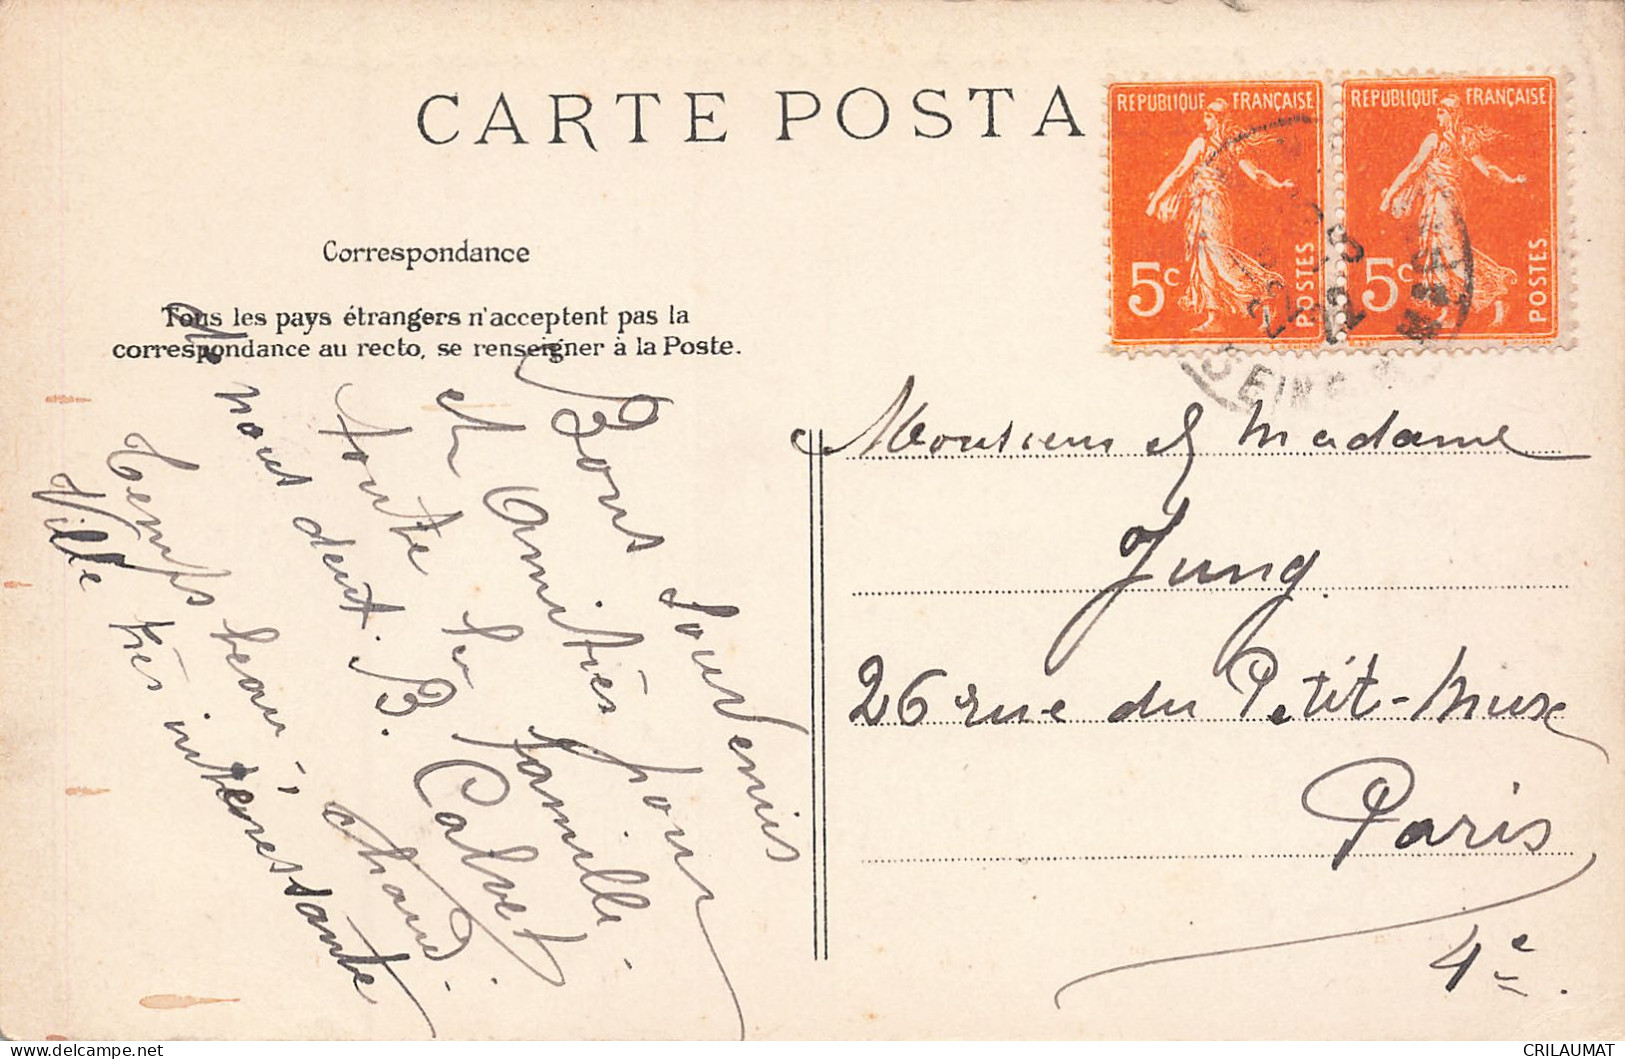 CARTE POSTA
RÉPUBLIQUE FRANÇAISE
5c
POSTES
RÉPUBLIQUE FRANÇAISE
5c
POSTES
22
SEINE
Correspondance
Tous les pays étrangers n'acceptent pas la
correspondance au recto, se renseigner à la Poste.
Bons souvenirs
et Amitiés pour
toute la famille.
nous deux. B. Calvet
Temps beau, chaud.
Ville très intéressante
Monsieur & Madame
Jung
26 rue du Petit-Musc
Paris
4e.
CRILAUMAT